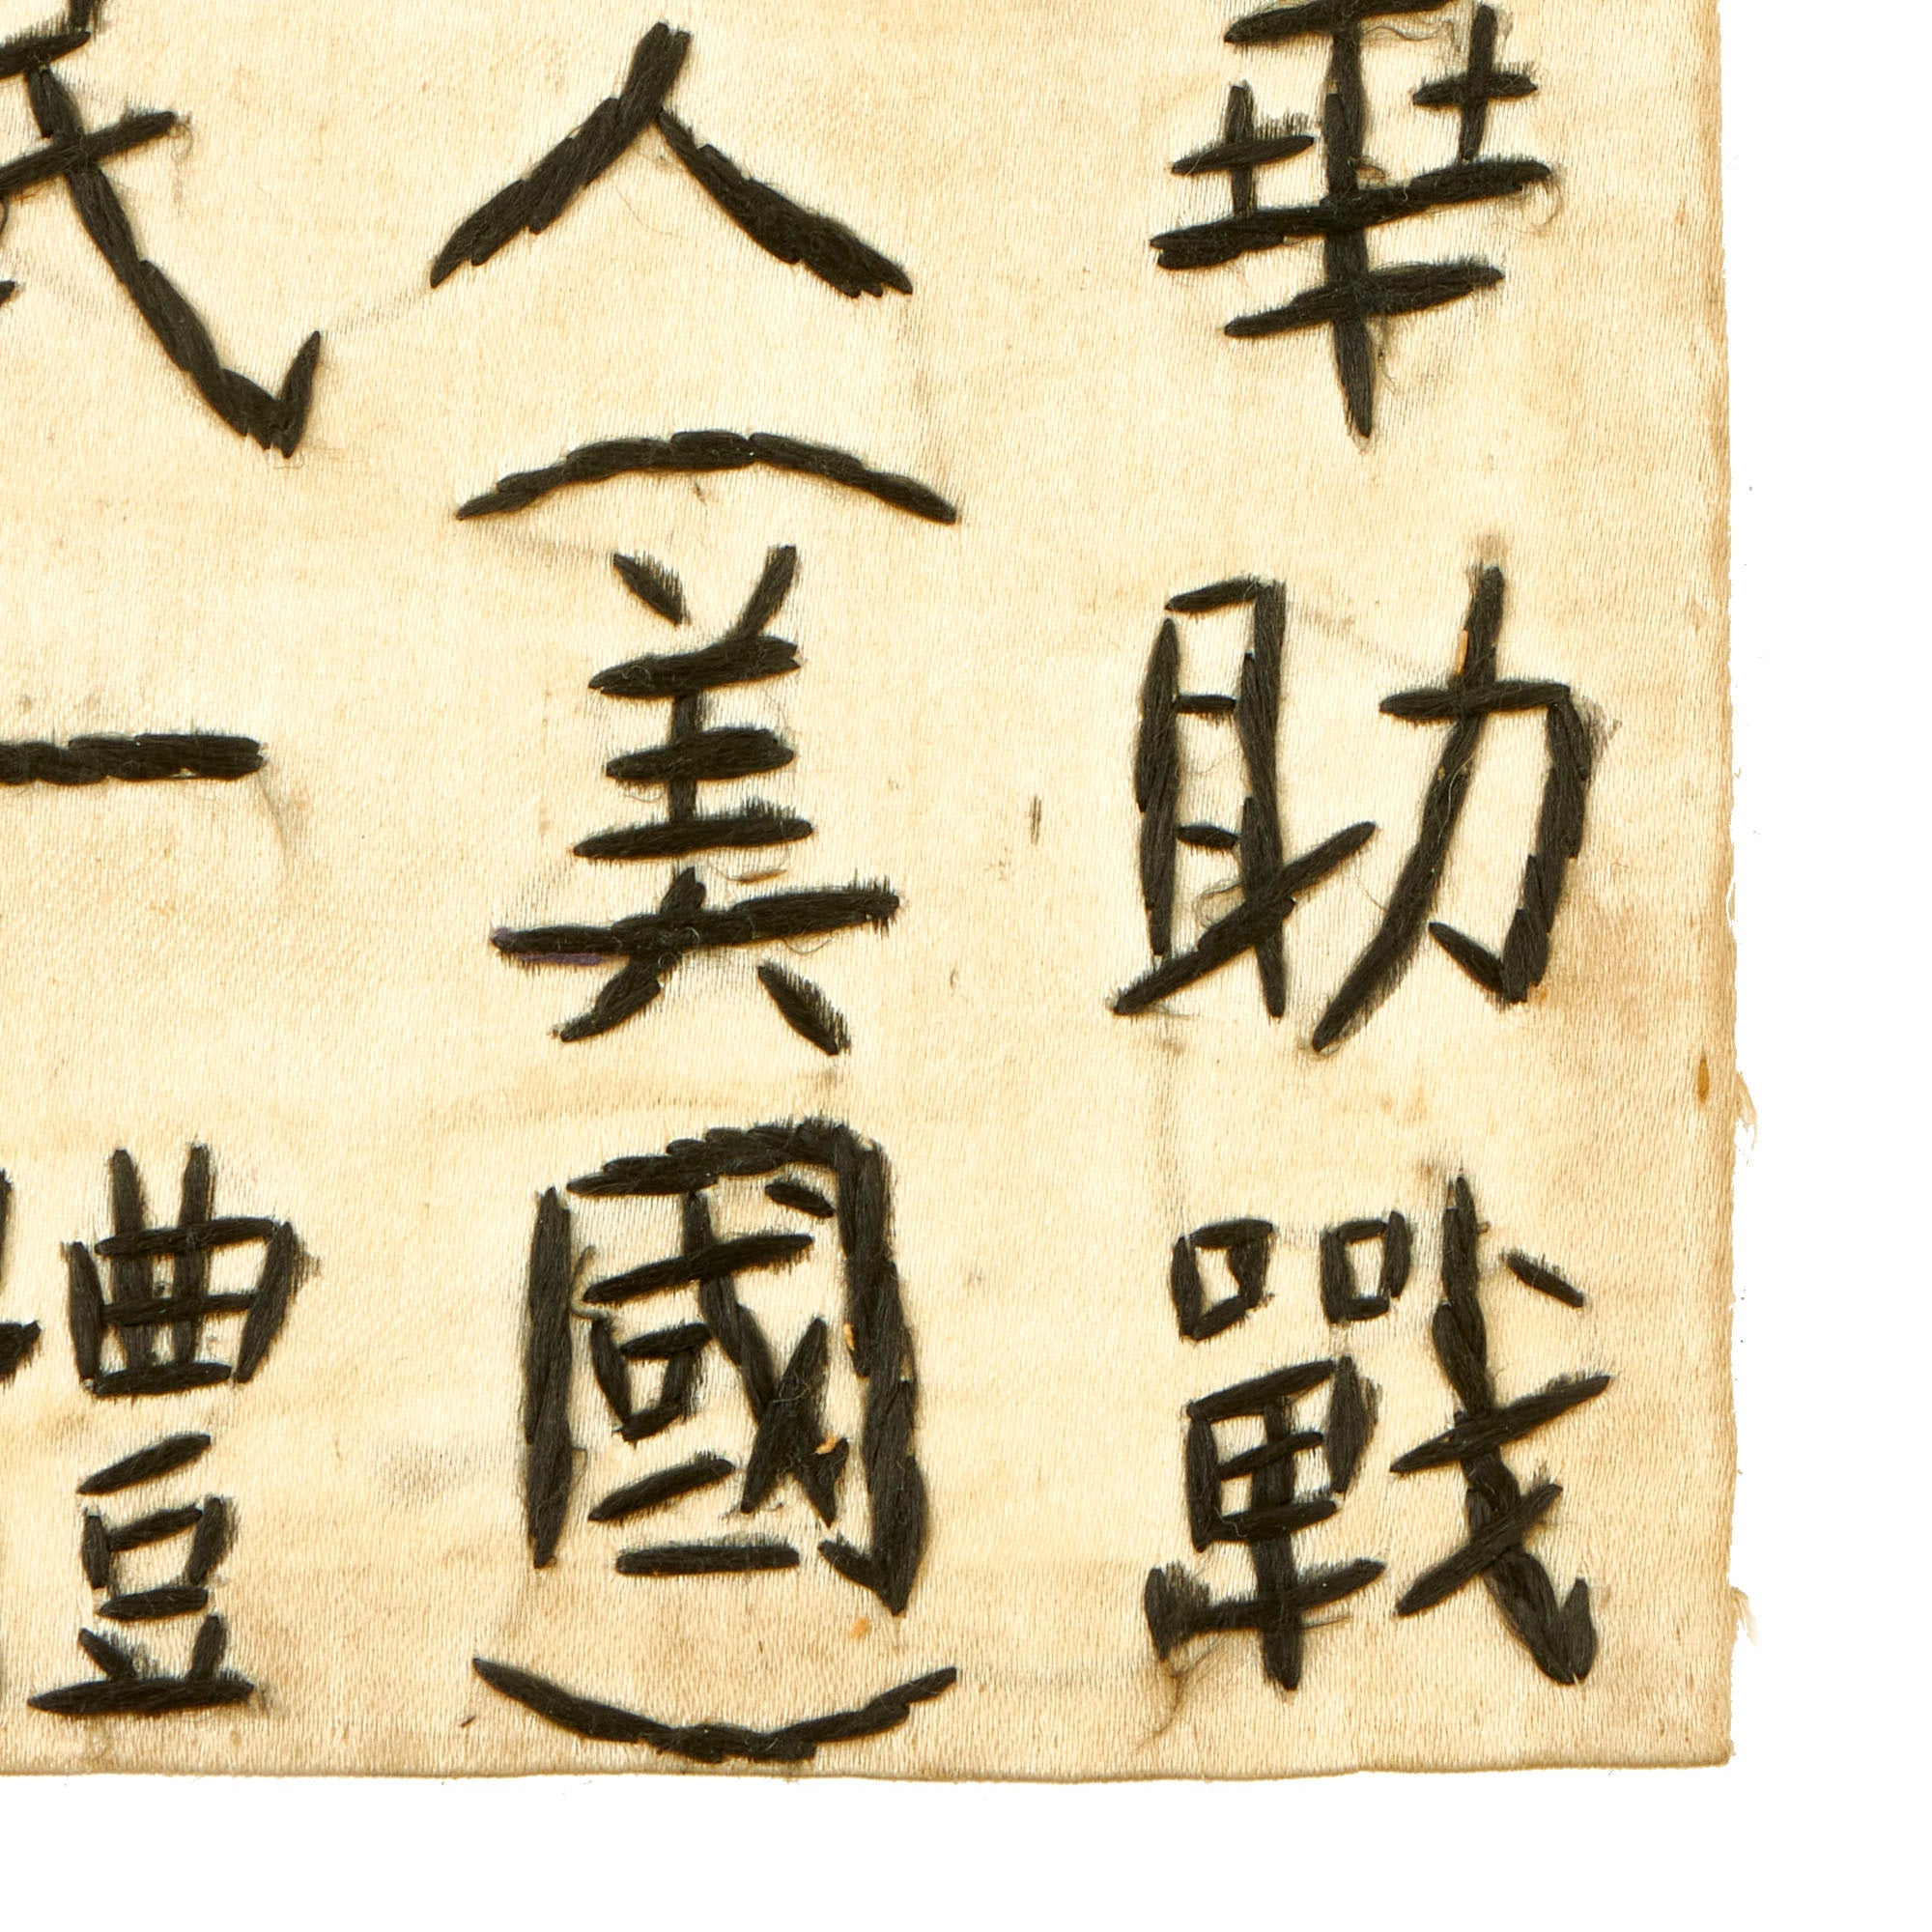 華助戰
人（美國）
民一體